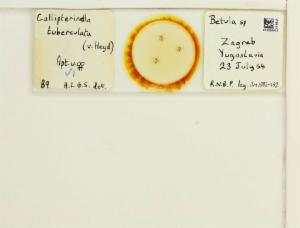 Callipterinella
tuberculata
(v. Heyd)
Apt. v. ♀♀
B9 H.L.G.S. det.
Betula sp
Zagreb
Yugoslavia
23 July
R.N.B.P. leg.